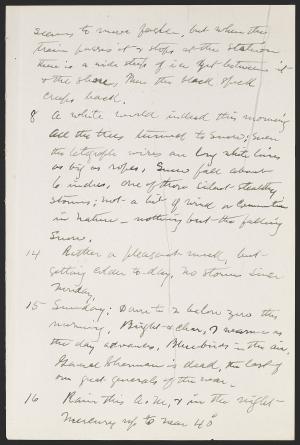 seems to move faster, but when the
train passes it & stops at the station
there is a wide strip of ice yet between it
& the shore, Then the black speck
creeps back.
8 A white world indeed this morning
All the trees turned to snow; even
the telegraph wires are long white lines
as big as ropes. Snow fall about
6 inches, one of those silent stealthy
storms; not a bit of wind or commotion
in nature — nothing but the falling
snow.
14 Rather a pleasant week, but
getting colder to-day, no storms since
Sunday,
15 Sunday; Down to 2 below zero this
morning. Bright & clear, & warm as
the day advances, Bluebirds in the air,
General Sherman is dead, the last of
our great generals of the war.
16 Rain this A.M. & in the night
Mercury up to near 40°